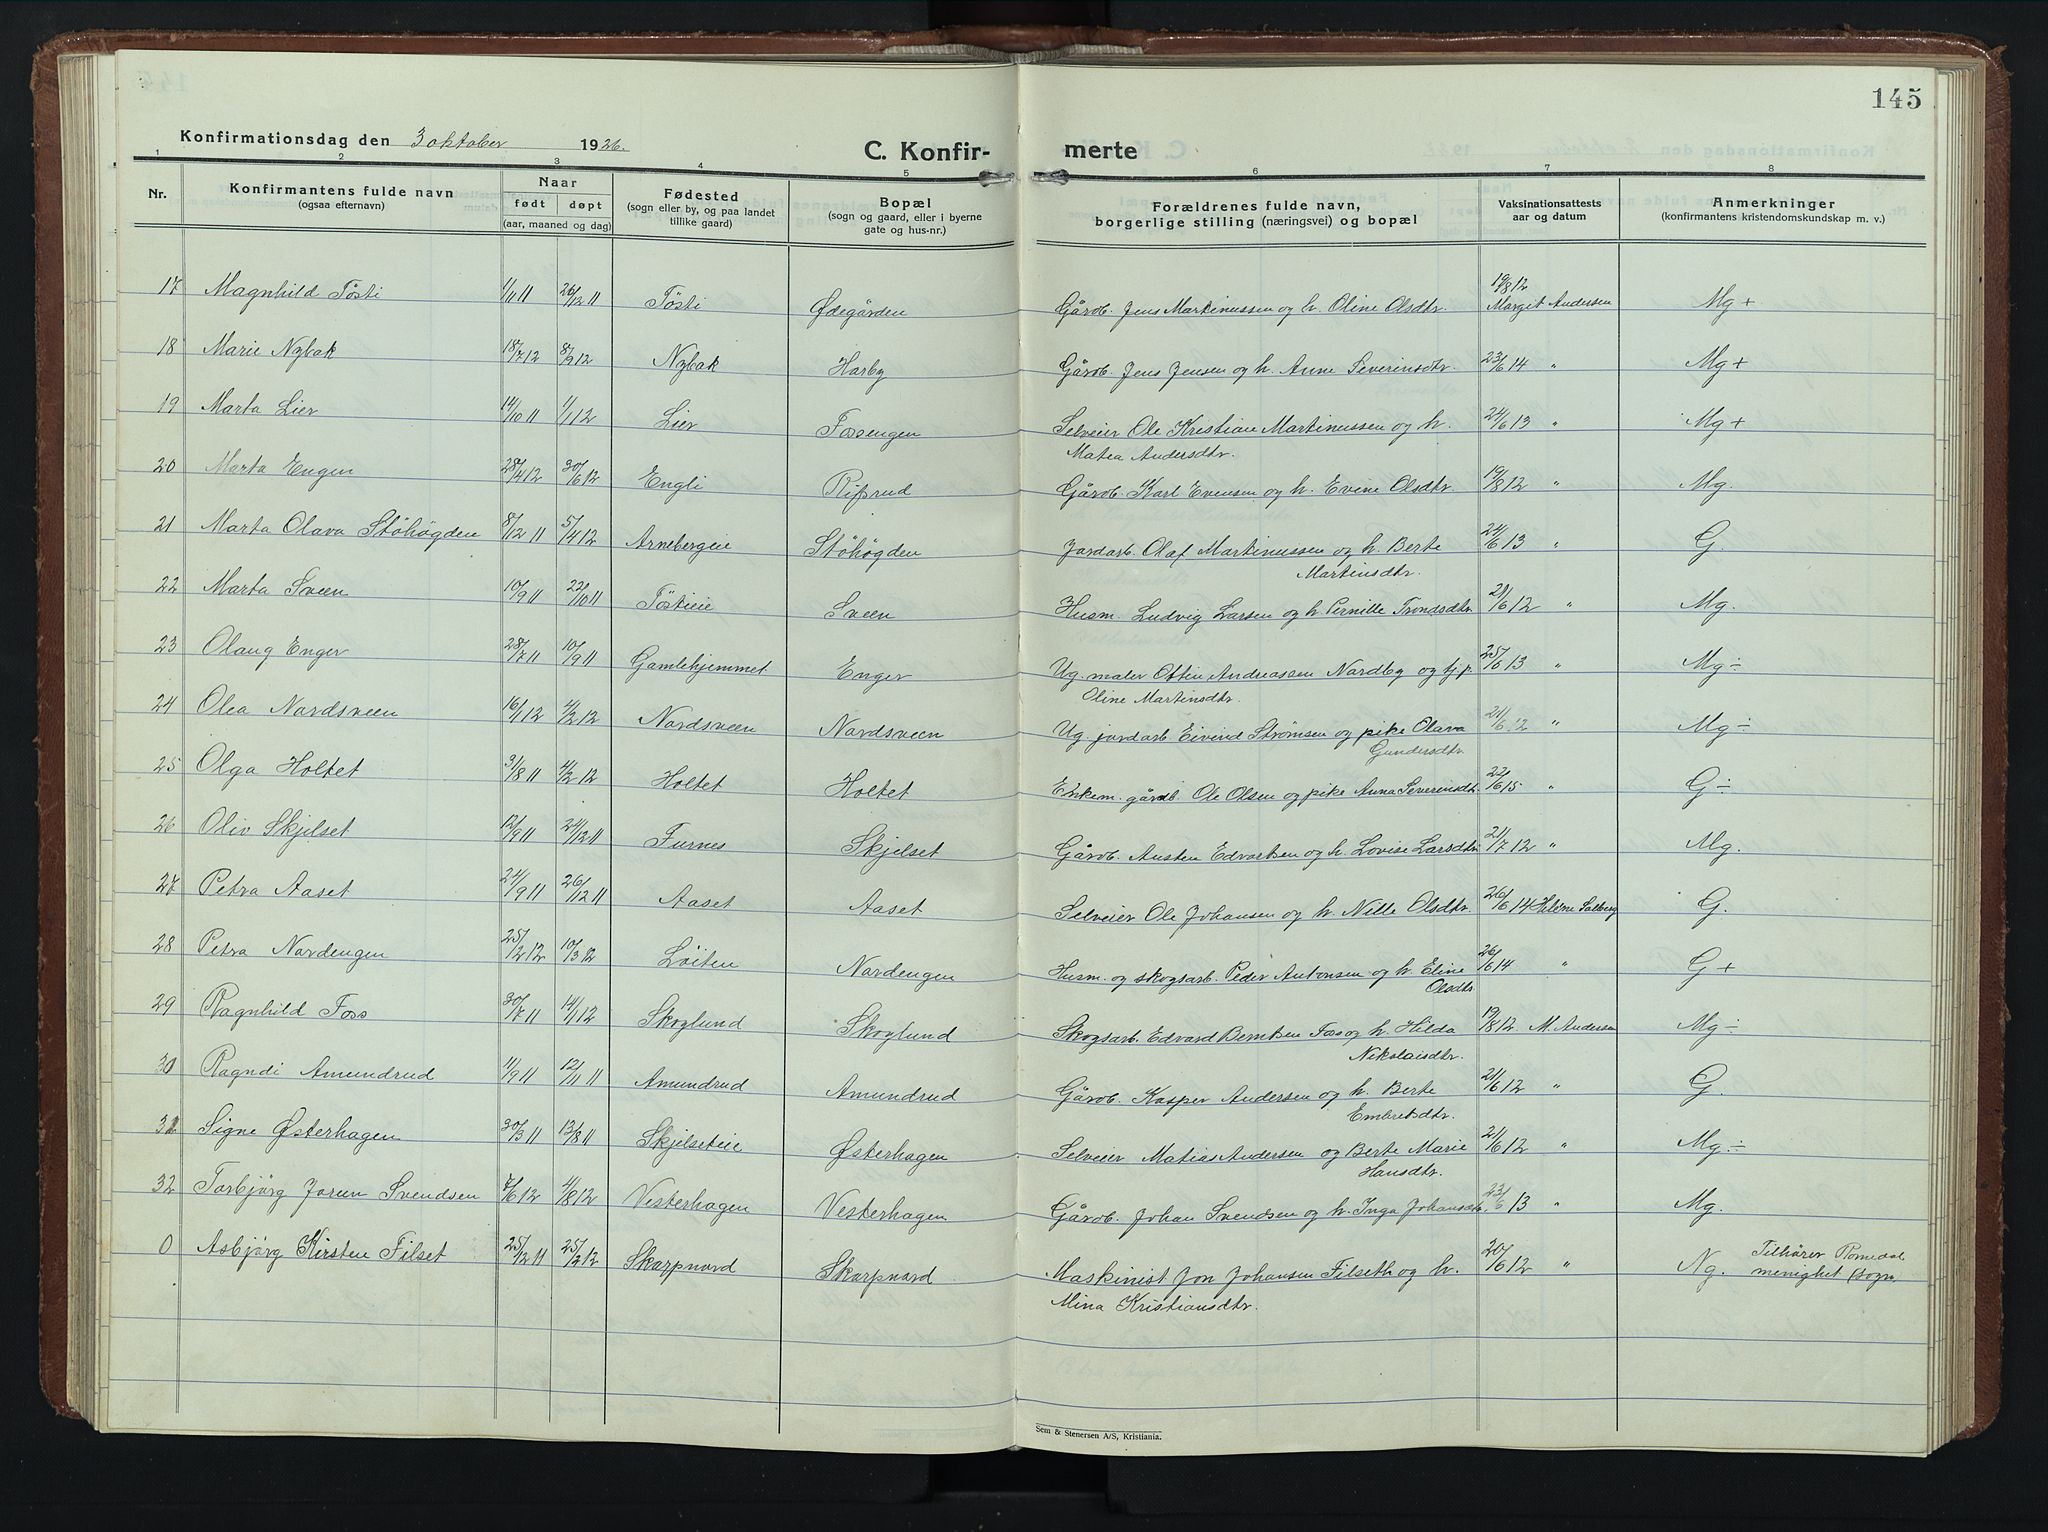 145
Konfirmationsdag den 3 oktober 1926.
C. Konfir-
merte
1 2 3 4 5 6 7 8
Nr. Konfirmantens fulde navn (ogsaa efternavn) Naar født døpt (aar, maaned og dag) Fødested (sogn eller by, og paa landet tillike gaard) Bopæl (sogn og gaard, eller i byerne gate og hus-nr.) Forældrenes fulde navn, borgerlige stilling (næringsvei) og bopæl Vaksinationsattests aar og datum Anmerkninger (konfirmantens kristendomskundskap m. v.)
17 Magnhild Tösti 1/11 11 26/12 11 Tösti Ødegården Gårdb. Jens Martinussen og h. Oline Olsdtr. 19/8 12 Margit Andersen Mg +
18 Marie Nybak 18/7 12 8/9 12 Nybak Harby Gårdb. Jens Jensen og h. Anne Severinsdtr. 23/6 14 " Mg +
19 Marta Lier 14/10 11 1/1 12 Lier Fossengen Selveier Ole Kristian Martinussen og h. 24/6 13 " Mg +
Matea Andersdtr.
20 Marta Engen 28/4 12 30/6 12 Engli Risrud Gårdb. Karl Evensen og h. Evine Olsdtr. 19/8 12 " Mg.
21 Marta Olava Stöhögden 8/12 11 5/4 12 Arnebergeie Stöhögden Jordarb. Olaf Martinussen og h. Berte 24/6 13 " G.
Martinsdtr.
22 Marta Sveen 10/9 11 22/10 11 Töstieie Sveen Husm. Ludvig Larsen og h. Pernille Trondsdtr. 21/6 12 " Mg.
23 Olaug Enger 28/7 11 10/9 11 Gamlehjemmet Enger Ug. maler Ottin Andreassen Nordby og tj.p. 25/6 13 " Mg ÷
Oline Martinsdtr.
24 Olea Nordsveen 16/1 12 4/2 12 Nordsveen Nordsveen Ug. jordarb. Eivind Strømsen og pike Olava 21/6 12 " Mg ÷
Gundersdtr.
25 Olga Holtet 31/8 11 4/2 12 Holtet Holtet Enkem. gårdb. Ole Olsen og pike Anna Severinsdtr. 22/6 15 " G ÷
26 Oliv Skjelset 12/9 11 24/12 11 Furnes Skjelset Gårdb. Austen Edvartsen og h. Lovise Larsdtr. 21/7 12 " Mg.
27 Petra Aaset 24/9 11 26/12 11 Aaset Aaset Selveier Ole Johansen og h. Nille Olsdtr. 26/6 14 Solberg G.
28 Petra Nordengen 25/2 12 10/3 12 Löiten Nordengen Husm. og skogsarb. Peder Antonsen og h. Eline 26/6 14 " G +
Olsdtr.
29 Ragnhild Foss 30/7 11 14/1 12 Skoglund Skoglund Skogsarb. Edvard Berntsen Foss og h. Hilda 19/8 12 M. Andersen Mg ÷
Nikolaisdtr.
30 Ragndi Amundrud 11/9 11 12/11 11 Amundrud Amundrud Gårdb. Kasper Andersen og h. Berte 21/6 12 " G.
Embretsdtr.
31 Signe Østerhagen 30/3 11 13/8 11 Skjelseteie Østerhagen Selveier Matias Andersen og Berte Marie 21/6 12 " Mg ÷
Hansdtr.
32 Torbjörg Jorun Svendsen 7/6 12 4/8 12 Vesterhagen Vesterhagen Gårdb. Johan Svendsen og h. Inga Johansdtr. 23/6 13 " Mg.
0 Asbjörg Kirsten Filset 25/12 11 25/2 12 Skarpnord Skarpnord Maskinist Jon Johansen Filseth og h. 20/6 12 " Ng. Tilhører Romedal
Mina Kristiansdtr. menighet (sogn)
Sem & Stenersen A/S, Kristiania.